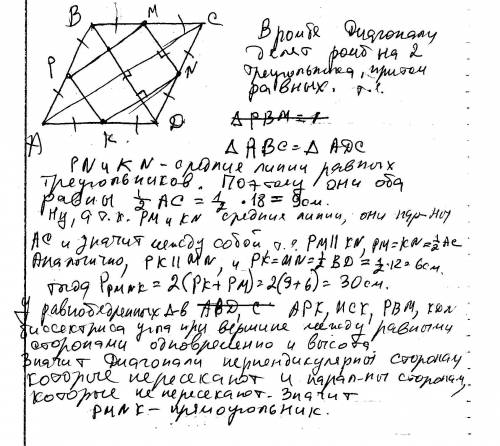 B M C
P N
A K D
В ромбе диагонали
делят ромб на 2
треугольника, притом
равных. т.е.
△PBM = 
△ABC = △ADC
PN и KN - средние линии равных
треугольников. Поэтому они оба
равны ½ AC = ½ · 18 = 9см.
Ну, а т.к. PM и KN средние линии, они пар-ны
AC и значит между собой, т.е. PM∥KN, PM=KN=½AC
Аналогично, PK∥MN, и PK=MN=½BD=½·12=6см.
тогда PPMNK = 2(PK+PM)=2(9+6)=30см.
У равнобедренных △в ABD, C APK, MCN, PBM,
биссектриса угла при вершине между равными
сторонами одновременно и высота.
Значит диагонали перпендикулярны сторонам,
которые пересекают и парал-ны сторонам,
которые не пересекают. Значит
PMNK - прямоугольник.